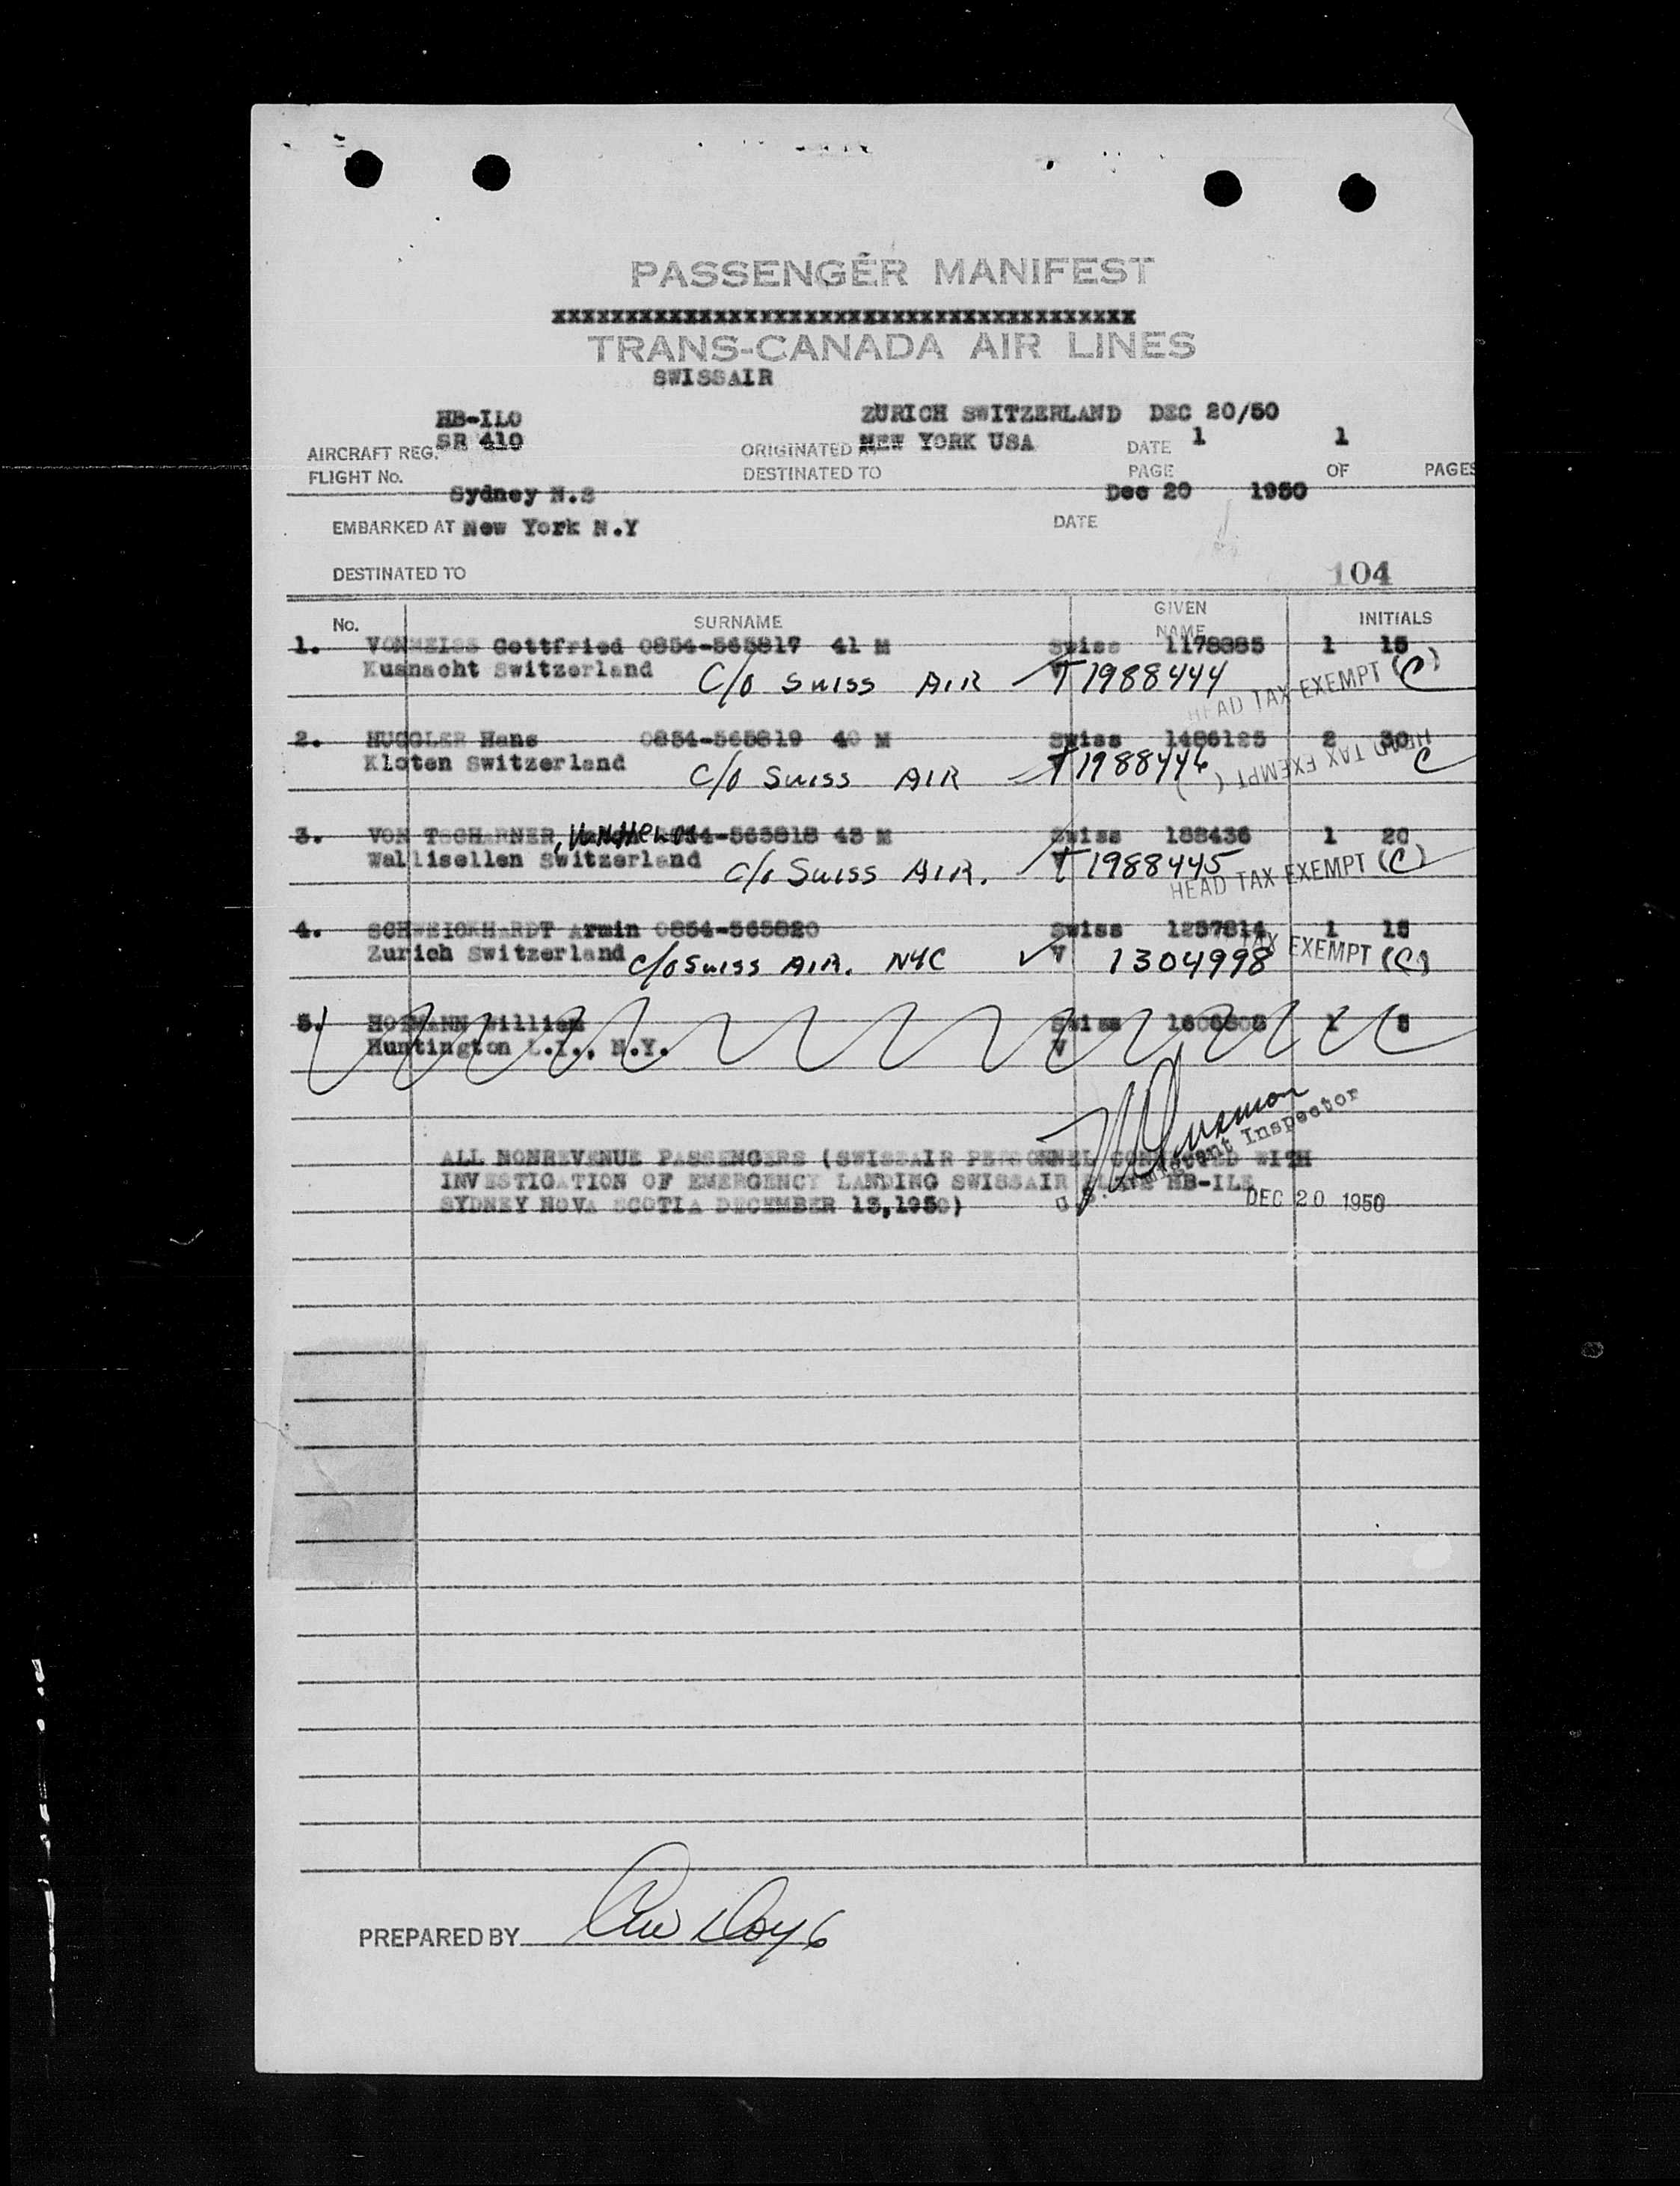 PASSENGER MANIFEST
xxxxxxxxxxxxxxxxxxxxxxxxxxxxxxxxxxxxxxxx
TRANS-CANADA AIR LINES
SWISSAIR
HB-ILO ZURICH SWITZERLAND DEC 20/50
AIRCRAFT REG. SR 410 ORIGINATED AT NEW YORK USA DATE 1 1
FLIGHT No. DESTINATED TO PAGE OF PAGES
Sydney N.S Dec 20 1950
EMBARKED AT New York N.Y DATE
DESTINATED TO 104
No. SURNAME GIVEN NAME INITIALS
1. VONMEISS Gottfried 0854-565817 41 M Swiss 1178385 1 15
Kusnacht Switzerland C/o SWISS AIR V 1988444 HEAD TAX EXEMPT (C)
2. HUGGLER Hans 0854-565819 40 M Swiss 1486125 2 30
Kloten Switzerland C/o SWISS AIR V 1988446 HEAD TAX EXEMPT ( C
3. VON TSCHARNER, 0854-565818 43 M Swiss 188436 1 20
Wallisellen Switzerland C/o SWISS AIR. V 1988445 HEAD TAX EXEMPT (C)
4. SCHWEICKHARDT Armin 0854-565820 Swiss 1257814 1 15
Zurich Switzerland C/o SWISS AIR. NYC V 1304998 TAX EXEMPT (C)
5. HOFMANN William Swiss 1 5
Huntington L.I., N.Y. V
ALL NONREVENUE PASSENGERS (SWISSAIR PERSONNEL CONNECTED WITH
INVESTIGATION OF EMERGENCY LANDING SWISSAIR PLANE HB-ILE
SYDNEY NOVA SCOTIA DECEMBER 13,1950)
U.S. Immigrant Inspector
DEC 20 1950
PREPARED BY